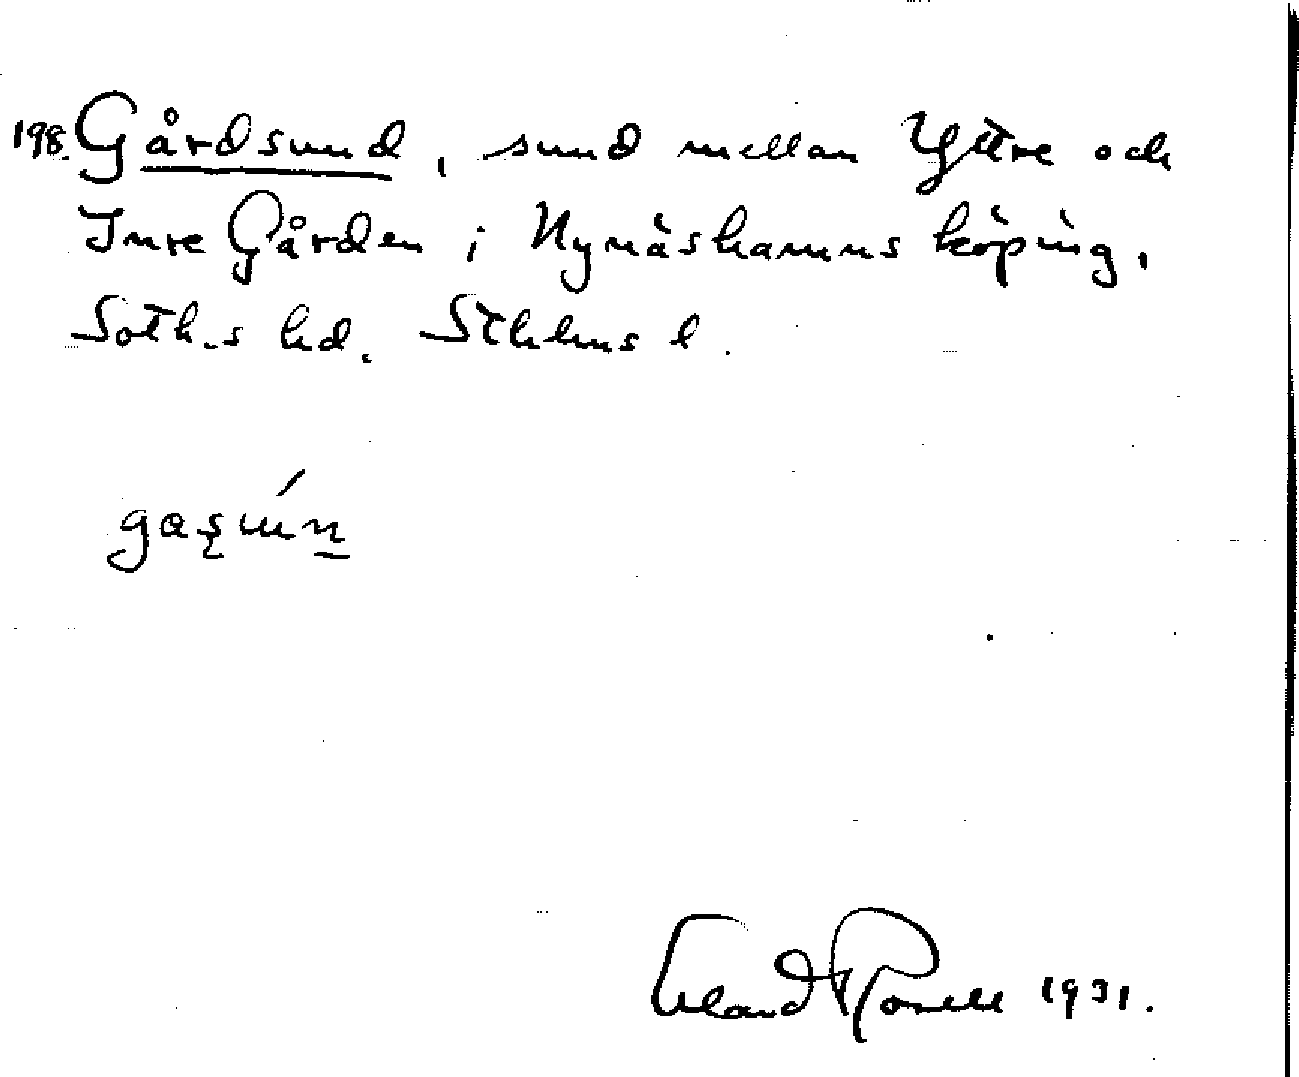 198. Gårdsund, sund mellan Yttre och
Inre Gården i Nynäshamns köping,
Soth.s hd. Sthlms l.
gaʂún̲
Erland Rosell 1931.